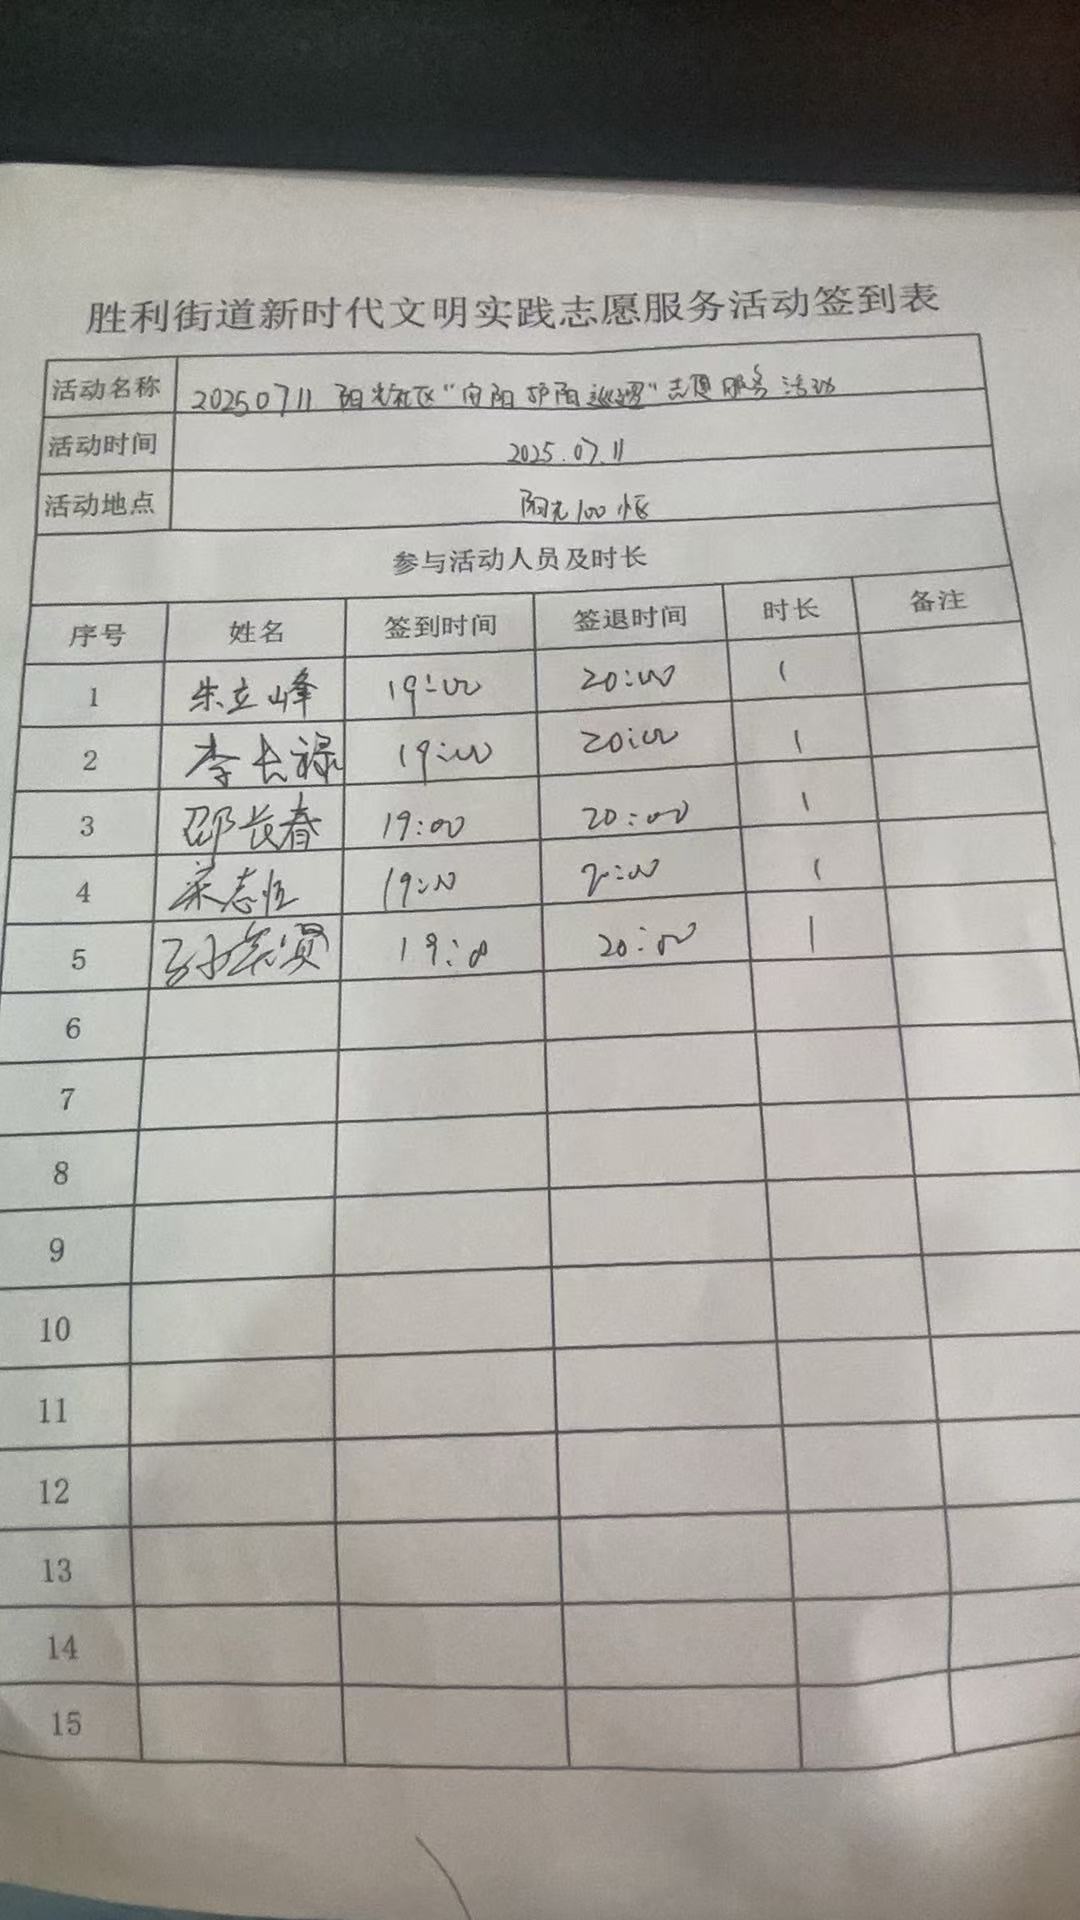 胜利街道新时代文明实践志愿服务活动签到表
活动名称 20250711 阳光社区“向阳护阳巡逻”志愿服务活动
活动时间 2025.07.11
活动地点 阳光100小区
参与活动人员及时长
序号 姓名 签到时间 签退时间 时长 备注
1 朱立峰 19:00 20:00 1
2 李长禄 19:00 20:00 1
3 邵长春 19:00 20:00 1
4 宋志恒 19:00 20:00 1
5 孙宪贤 19:00 20:00 1
6
7
8
9
10
11
12
13
14
15